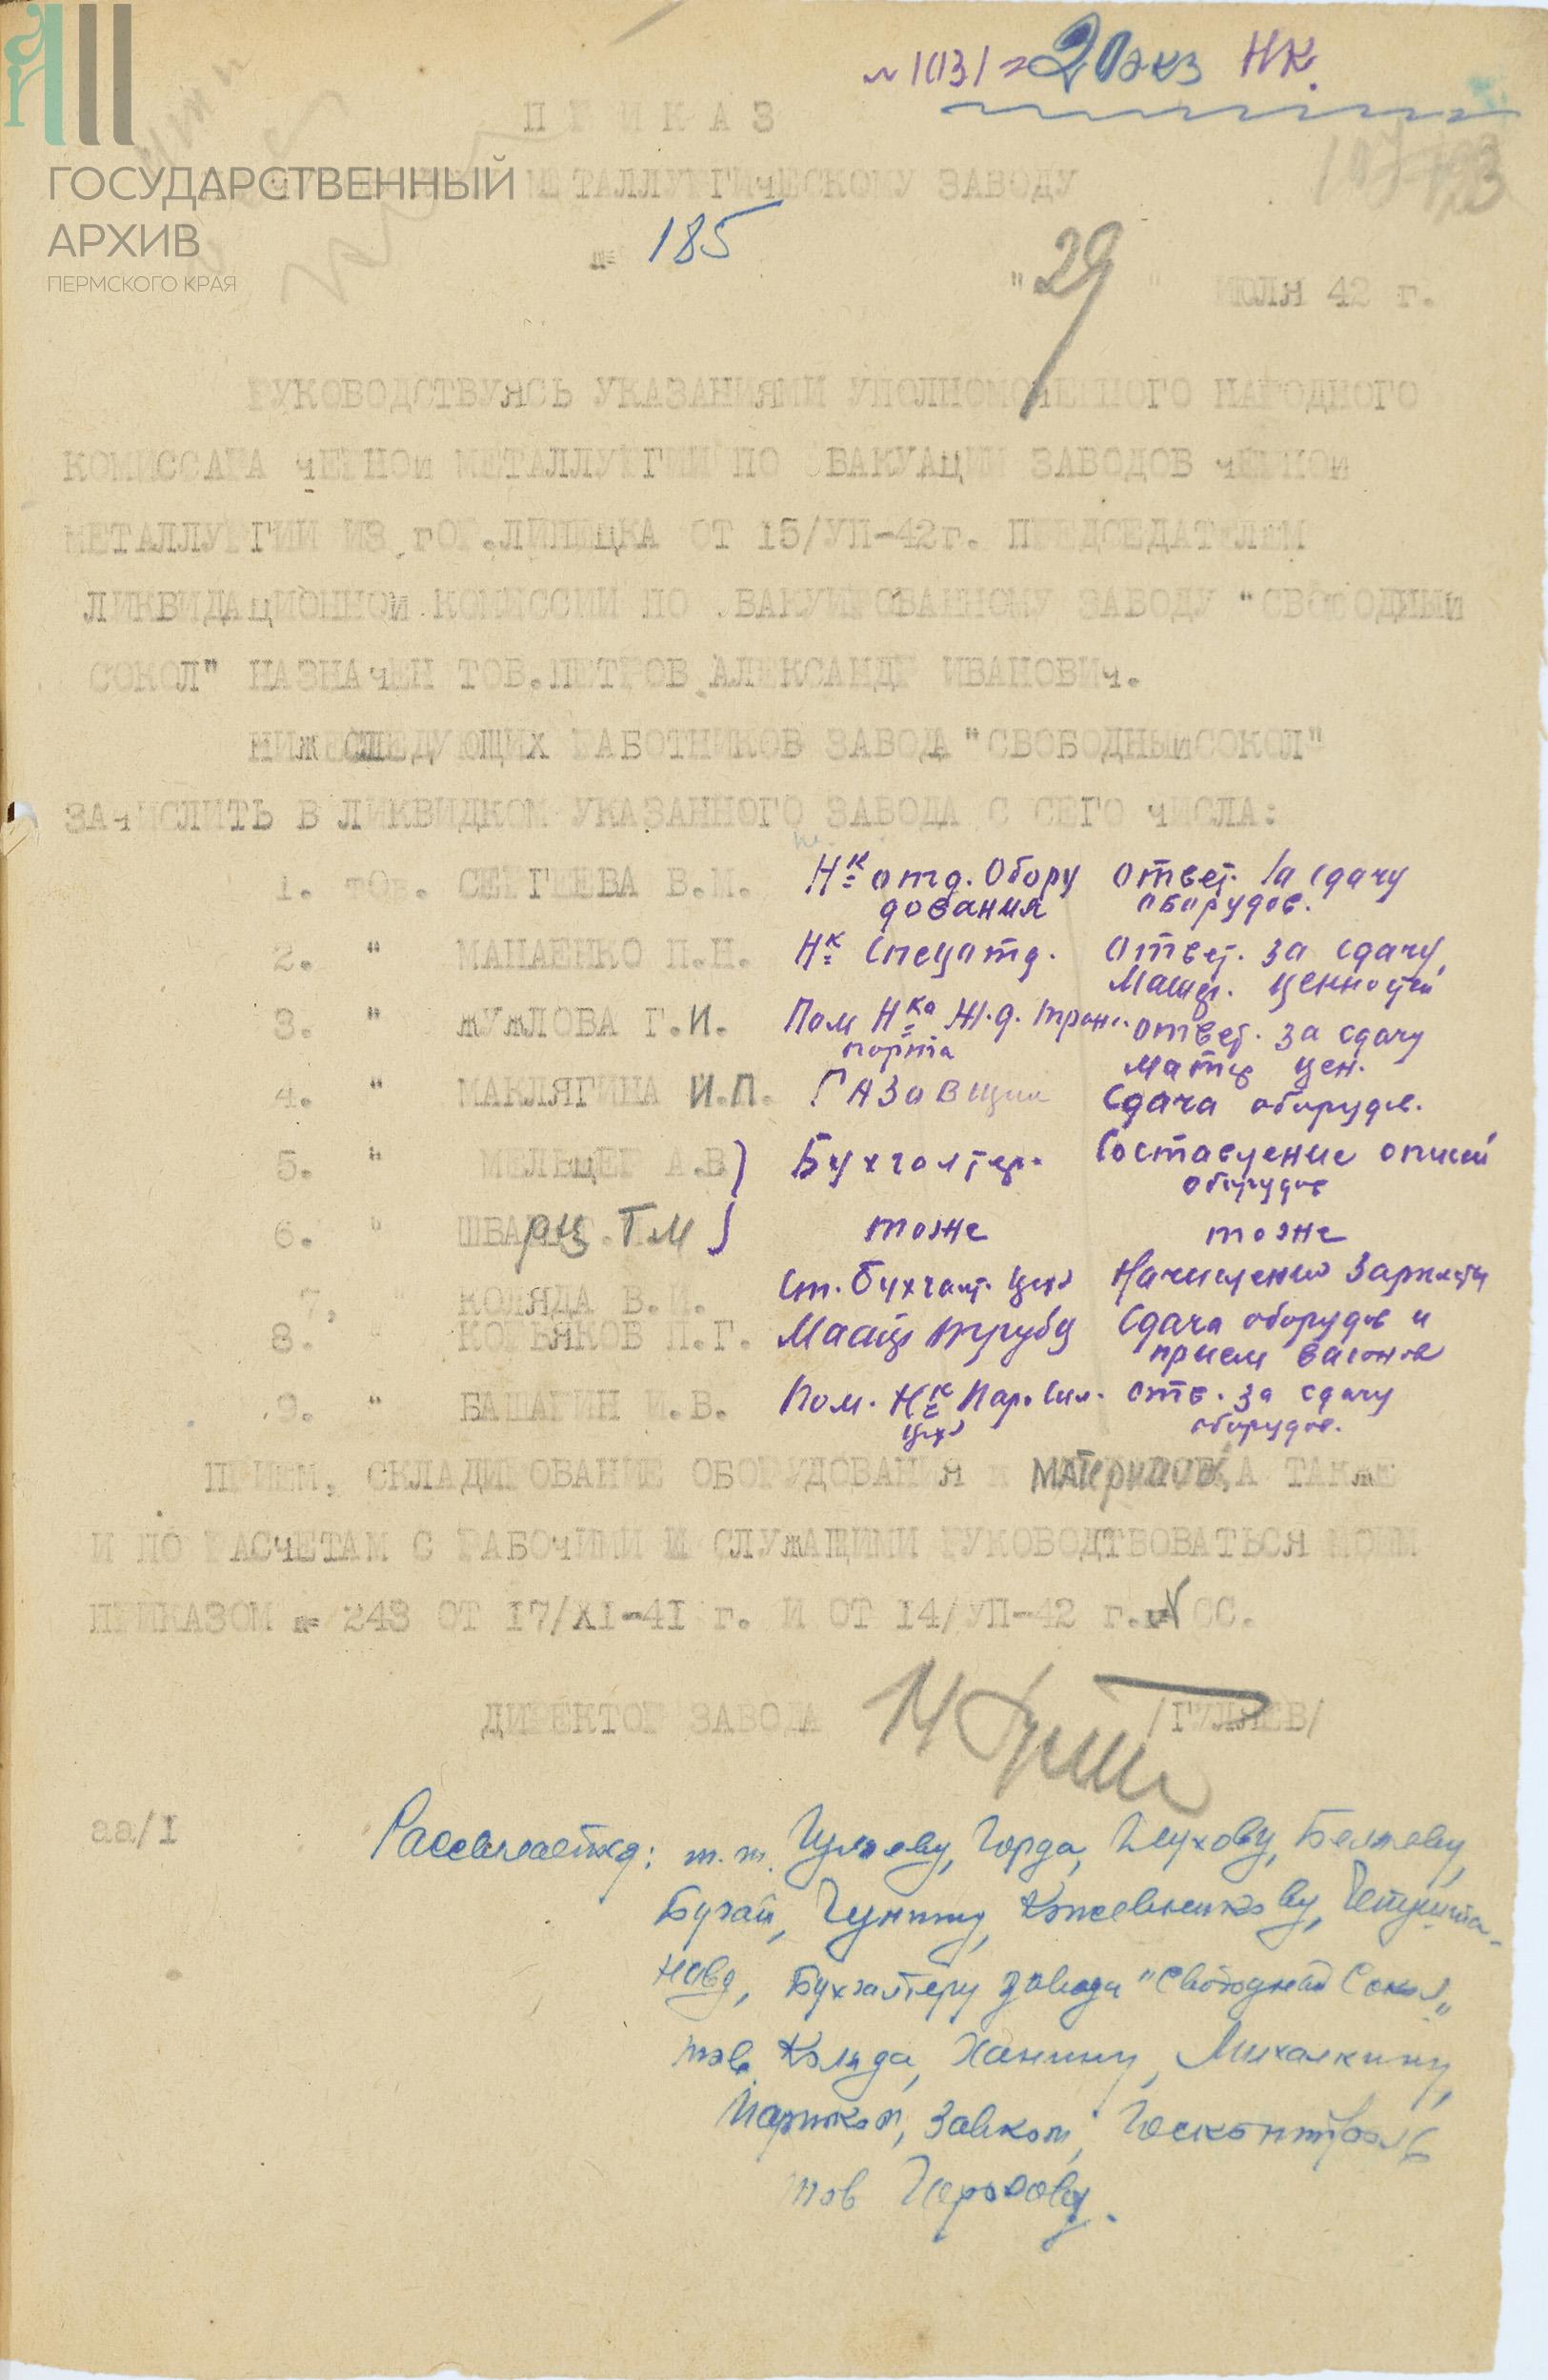 № 1031 20 экз НК.
ПРИКАЗ
ГОСУДАРСТВЕННЫЙ
АРХИВ
ПЕРМСКОГО КРАЯ
МЕТАЛЛУРГИчЕСКОМУ ЗАВОДУ
№ 185
"29" ИЮЛЯ 42 г.
РУКОВОДСТВУЯСЬ УКАЗАНИЯМИ УПОЛНОМОЧЕННОГО НАРОДНОГО
КОМИССАРА чЕРНОй МЕТАЛЛУРГИИ ПО ЭВАКУАцИИ ЗАВОДОВ чЕРНОй
МЕТАЛЛУРГИИ ИЗ гОР.ЛИПЕцКА ОТ 15/УП-42г. ПРЕДСЕДАТЕЛЕМ
ЛИКВИДАцИОННОй КОМИССИИ ПО ЭВАКУИРОВАННОМУ ЗАВОДУ "СВОБОДНЫй
СОКОЛ" НАЗНАчЕН ТОВ.ПЕТРОВ АЛЕКСАНДР ИВАНОВИч.
НИжЕСЛЕДУЮЩИХ РАБОТНИКОВ ЗАВОДА "СВОБОДНЫйСОКОЛ"
ЗАчИСЛИТЬ В ЛИКВИДКОМ УКАЗАННОГО ЗАВОДА С СЕГО чИСЛА:
1. тОв. СЕРГЕЕВА В.М. Нк отд. Обору Ответ. за сдачу
дования оборудов.
2. " МАНАЕНКО П.Н. Нк Спецотд. Ответ. за сдачу
Матер. ценностей
3. " жУжЛОВА Г.И. Пом Нка Ж.д. транс- ответ. за сдачу
порта матер цен.
4. " МАКЛЯГИНА И.П. Газовщик Сдача оборудов.
5. " МЕЛЬцЕР А.В) Бухгалтер. Составление описей
оборудов
6. " ШВАРЦ. Г М ) тоже тоже
7, " КОЛЯДА В.И. Ст. бухгалт. цеха Начисление зарплаты
8. " КОРЬЯКОВ П.Г. Мастер трубы Сдача оборудов и
прием вагонов
9. " БАШАРИН И.В. Пом. Нк Пар. Сил. Отв. за сдачу
цеха оборудов.
ПРИЕМ, СКЛАДИРОВАНИЕ ОБОРУДОВАНИЯ И МАТериалов,А ТАКжЕ
И ПО РАСчЕТАМ С РАБОчИМИ И СЛУжАЩИМИ РУКОВОДТВОВАТЬСЯ МОИМ
ПРИКАЗОМ № 243 ОТ 17/XI-41 г. И ОТ 14/УП-42 г. № СС.
ДИРЕКТОР ЗАВОДА /ГУЛЯЕВ/
аа/I
т.т. Гуляеву, Горда, Глухову, Беляеву,
Бугай, Гунину, Кожевникову,
Бухгалтеру завода "Свободный Сокол"
тов. Коляда, Ханину, Михалкину,
Партком, Завком, Госконтроль
тов